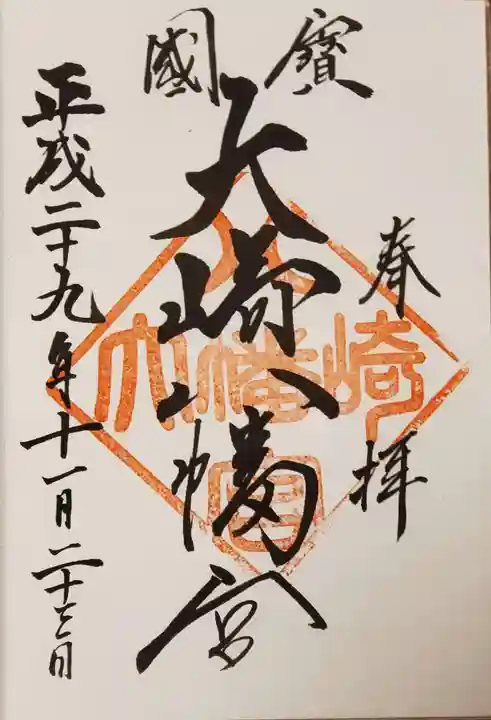 國寳
奉拝
大崎八幡宮
平成二十九年十一月二十三日
大崎八幡宮